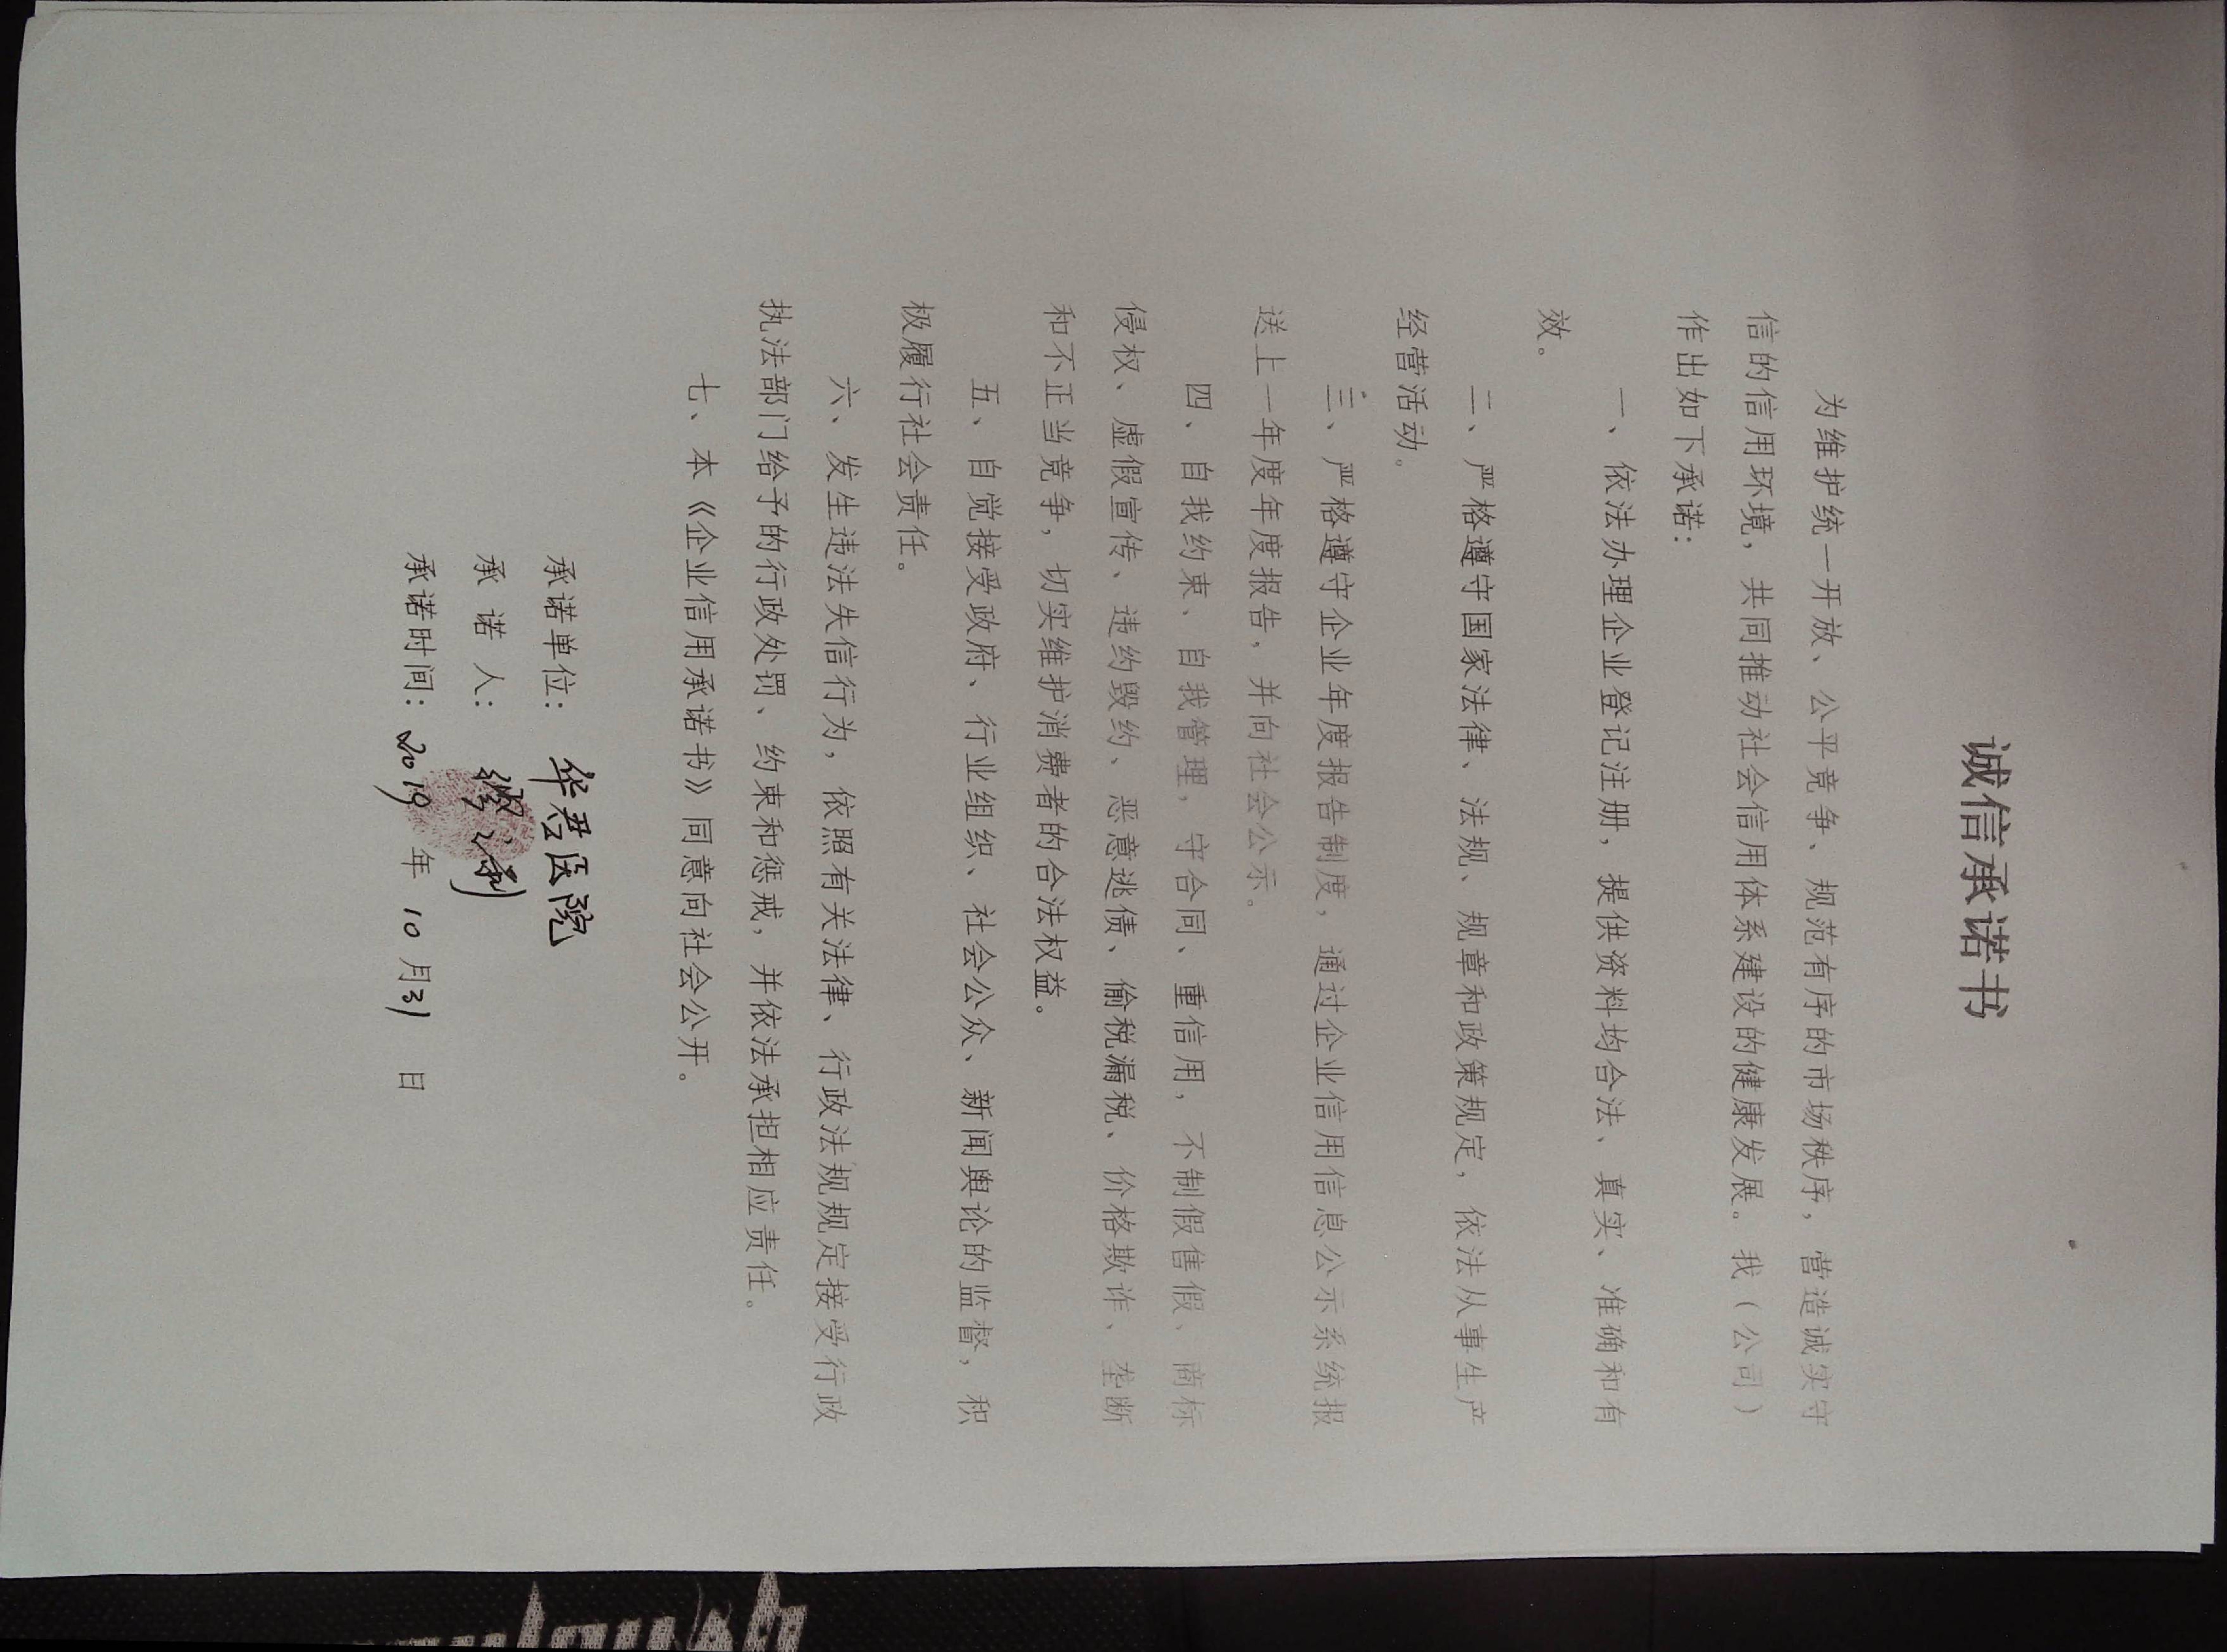 诚信承诺书
为维护统一开放、公平竞争、规范有序的市场秩序，营造诚实守
信的信用环境，共同推动社会信用体系建设的健康发展。我（公司）
作出如下承诺：
一、依法办理企业登记注册，提供资料均合法、真实、准确和有
效。
二、严格遵守国家法律、法规、规章和政策规定，依法从事生产
经营活动。
三、严格遵守企业年度报告制度，通过企业信用信息公示系统报
送上一年度年度报告，并向社会公示。
四、自我约束、自我管理，守合同、重信用，不制假售假、商标
侵权、虚假宣传、违约毁约、恶意逃债、偷税漏税、价格欺诈、垄断
和不正当竞争，切实维护消费者的合法权益。
五、自觉接受政府、行业组织、社会公众、新闻舆论的监督，积
极履行社会责任。
六、发生违法失信行为，依照有关法律、行政法规规定接受行政
执法部门给予的行政处罚、约束和惩戒，并依法承担相应责任。
七、本《企业信用承诺书》同意向社会公开。
承诺单位：华君医院
承 诺 人：
承诺时间：2019年 10月31日